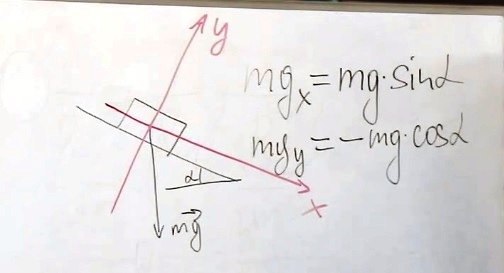 y
mgₓ = mg·sinα
mg_y = −mg·cosα
α
x
mg⃗